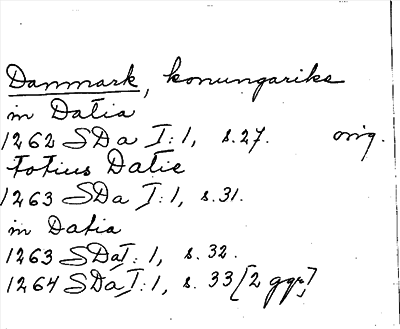 Danmark, konungarike
in Datia
1262 SDa I:1, s.27. orig.
totius Datie
1263 SDa I:1, s.31.
in Datia
1263 SDa I:1, s.32.
1264 SDa I:1, s.33 [2 ggr]